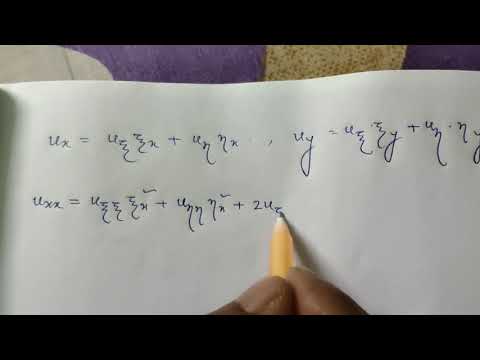 uₓ = u_ξ ξₓ + u_η ηₓ , u_y = u_ξ · ξ_y + u_η · η_y
uₓₓ = u_ξξ ξₓ² + u_ηη ηₓ² + 2u_ξ